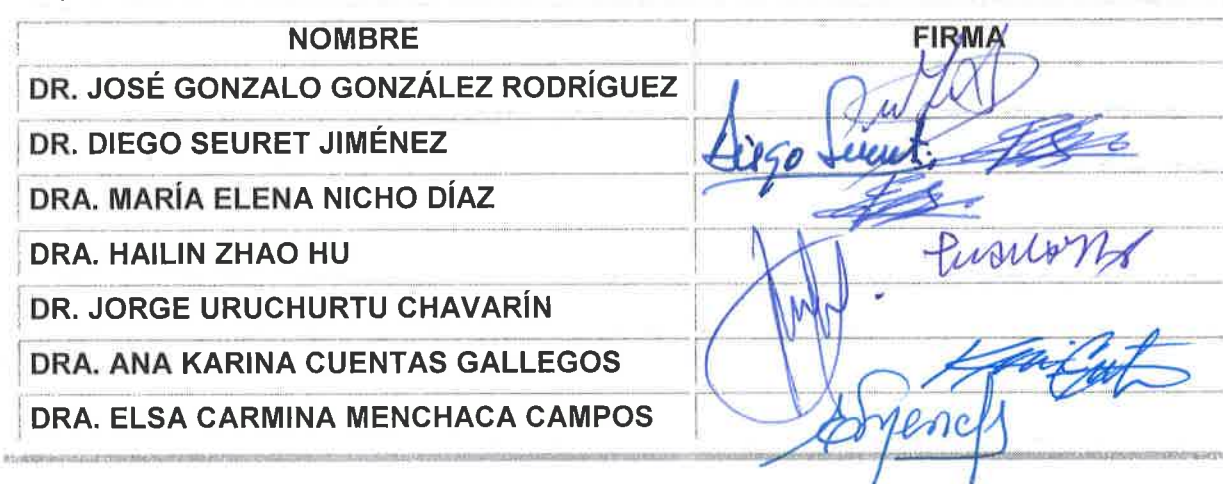 NOMBRE FIRMA
DR. JOSÉ GONZALO GONZÁLEZ RODRÍGUEZ
DR. DIEGO SEURET JIMÉNEZ Diego Seuret
DRA. MARÍA ELENA NICHO DÍAZ
DRA. HAILIN ZHAO HU
DR. JORGE URUCHURTU CHAVARÍN
DRA. ANA KARINA CUENTAS GALLEGOS
DRA. ELSA CARMINA MENCHACA CAMPOS